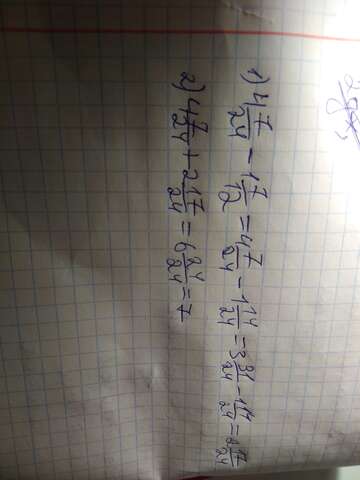 1) 4 7/24 - 1 7/12 = 4 7/24 - 1 14/24 = 3 31/24 - 1 14/24 = 2 17/24
2) 4 7/24 + 2 17/24 = 6 24/24 = 7